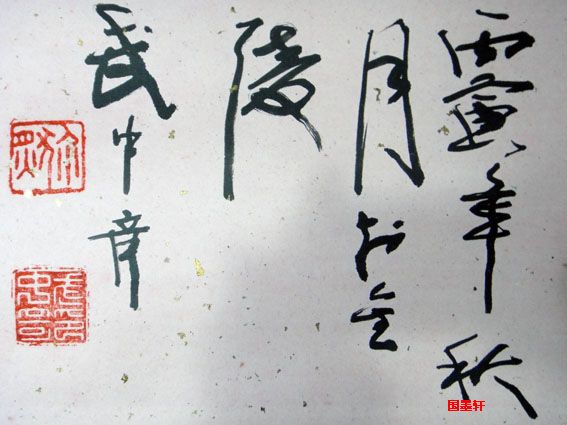 丙寅年秋
月於金
陵
武中奇
国墨轩